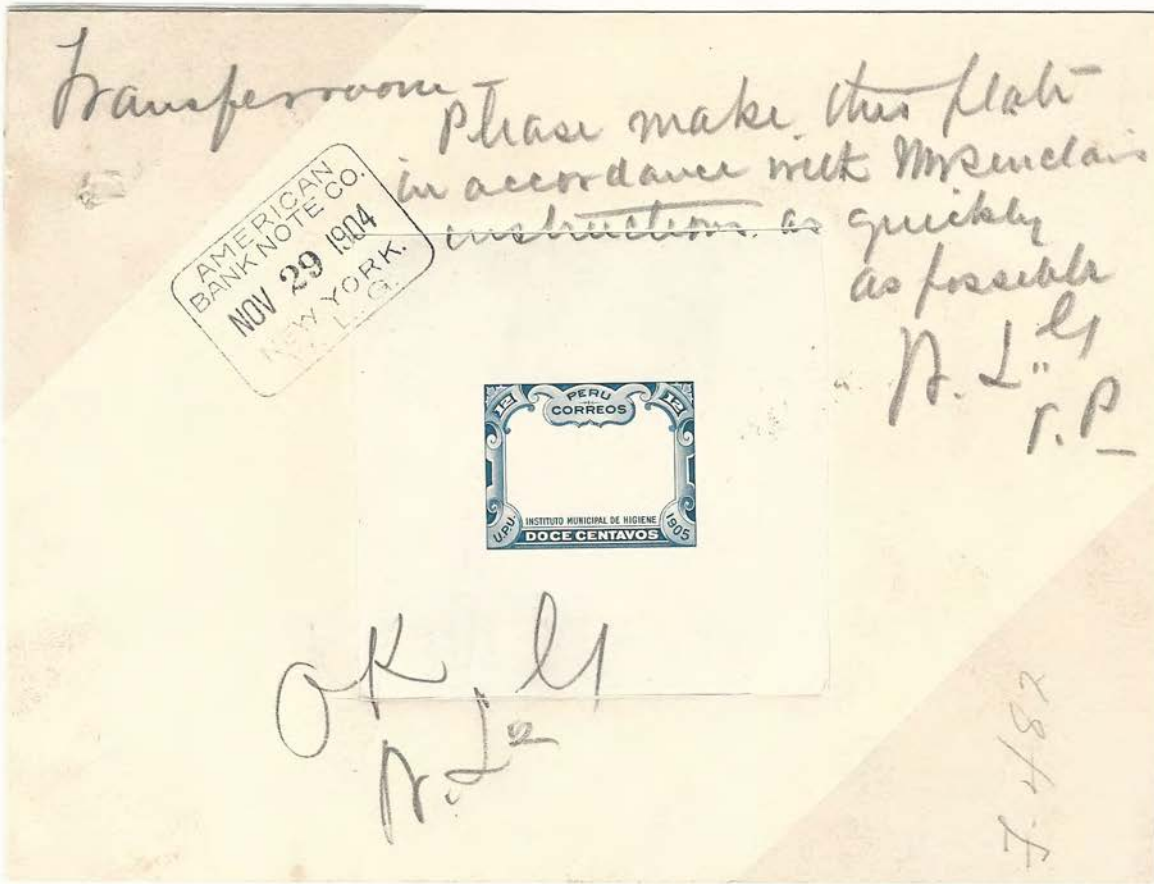 Transferroom -
Please make this plate
in accordance with Mr Sinclairs
instructions. as quickly
as possible
L. G.
r. P
AMERICAN
BANK NOTE CO.
NOV 29 1904
NEW YORK.
L. G.
PERU
CORREOS
12
12
U.P.U.
INSTITUTO MUNICIPAL DE HIGIENE
1905
DOCE CENTAVOS
OK
F. 482